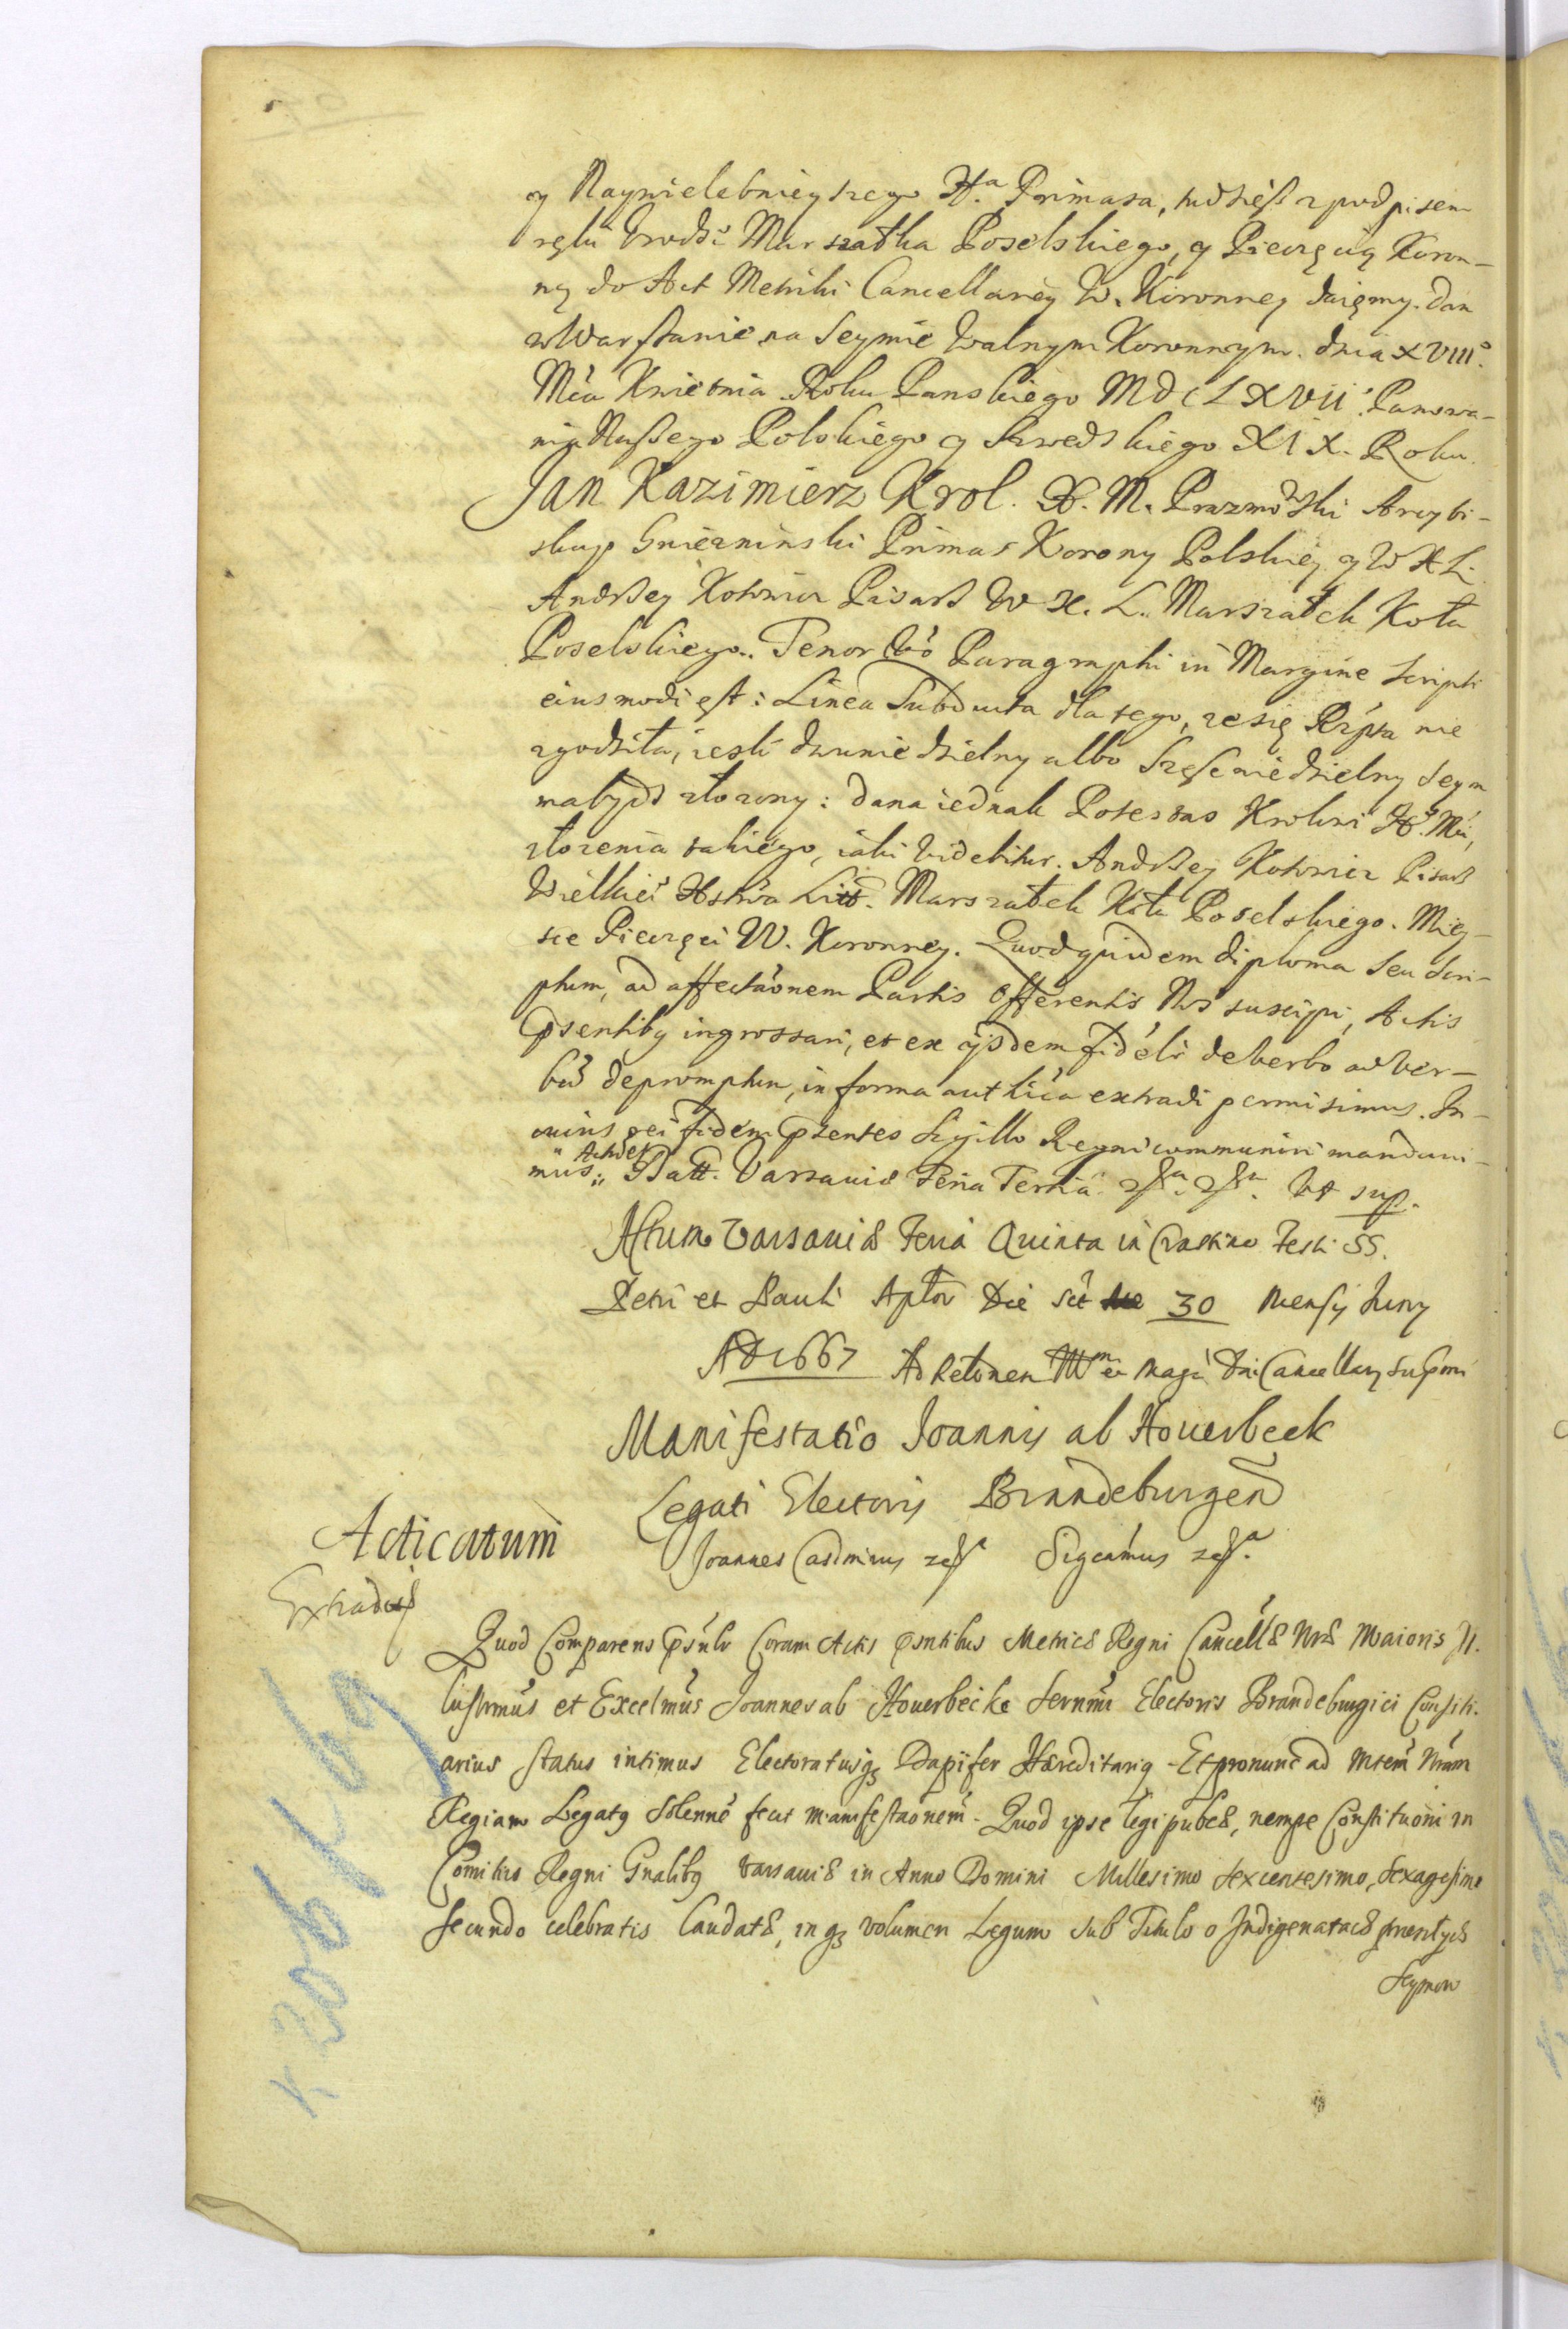 y Naywielebnieyszego X.ª Primasa, tudzieß z podpisem
ręku Urodź Marszałka Poselskiego, y Pieczęcią Koron-
ną do Act Metriki Cancellariey W. Koronney daięmy. Dan
w Warßawie na Seymie Walnym Koronnym. dnia XVIIIº.
Mća Kwietnia Roku Panskiego MDCLXVII. Panowa-
nia Naßego Polskiego y Szwedskiego XIX. Roku.
Jan Kazimierz Krol. X. M. Prazmowski Arcybi-
skup Gniezninski Primas Korony Polskiey y W X L.
Andrzey Kotowicz Pisarz W X. L. Marszałek Koła
Poselskiego. Tenor vo Paragraphi in Margine scripti
eiusmodi est: Linea Subducta dla tego, ze się Rzpta nie
zgodziła, iesli dwuniedzielny albo Szescniedzielny Seym
ma bydź złozony: dana iednak Potestas Krolowi JE° Mći,
złozenia takiego, iaki videbitur. Andrzey Kotowicz Pisarz
Wielkie° Xstwa Litt. Marszałek Koła Poselskiego. Miey-
sce Pieczęci W. Koronney. Quodquidem diploma seu scri-
ptum, ad affectaonem Partis Offerentis Nos suscipi, Actis
psentibq ingrossari, et ex ijsdem fideli de verbo ad ver-
bū depromptum, in forma authica extradi permisimus. In
cuius rei fidem psentes Sigillo Regni communiri mandavi-
mus. Act et Datt. Varsavię Feria Tertia zßª. zßª. Ut sup.
Actum Varsaviæ Feria Quinta in Crastino Festi SS.
Petri et Pauli Aptor Die sct 30 Mensis Juny
AD 1667 Ad Relonem Illmi et Magci Dni Cancellarij Supmi
Manifestatio Joannis ab Houerbeek
Legati Electoris Brandeburgen
Acticatum
Joannes Casimirus zßª Sigcamus zßª.
Extradit
Quod Comparens psnlr Coram Actis psntibus Metricæ Regni Cancellæ Nræ Maioris Il-
lustrmus et Excelmus Joannes ab Houerbecke Sernmi Electoris Brandeburgici Consili-
arius status intimus Electoratusq Dapifer Hæreditariq Et pro nunc ad Mtem Nram
Regiam Legatq Solenne fecit manifestaonem. Quod ipse legi pubcæ, nempe Constituoni in
Comitiis Regni Gnalibq Varsaviæ in Anno Domini Millesimo sexcentesimo, sexagesimo
secundo celebratis Laudatæ, inq volumen Legum sub Titulo o Indigenatach
Seymow